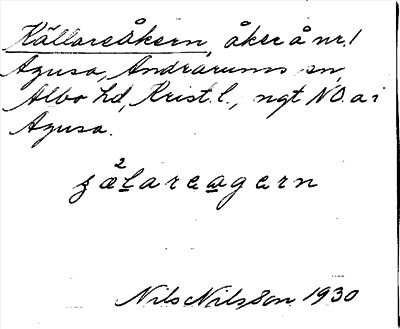 Källareåkern, åker å nr. 1
Agusa, Andrarums sn,
Albo hd, Krist. l., ngt NO. a i
Agusa.
2
ʒælareagern
Nils Nilsson 1930